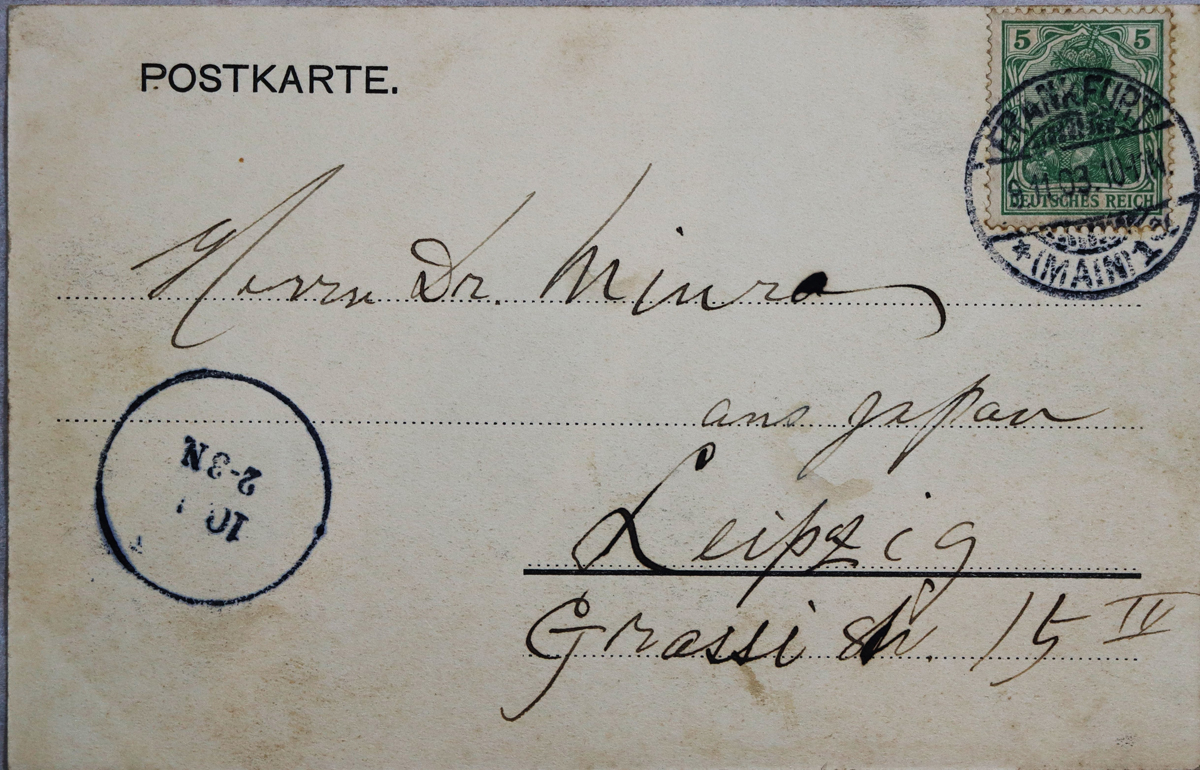 POSTKARTE.
5 5
DEUTSCHES REICH
FRANKFURT
11.03.10-11N.
* (MAIN) 1
Herrn Dr. Miura
aus Japan
Leipzig
Grassi str. 15 IV
2-3N
10